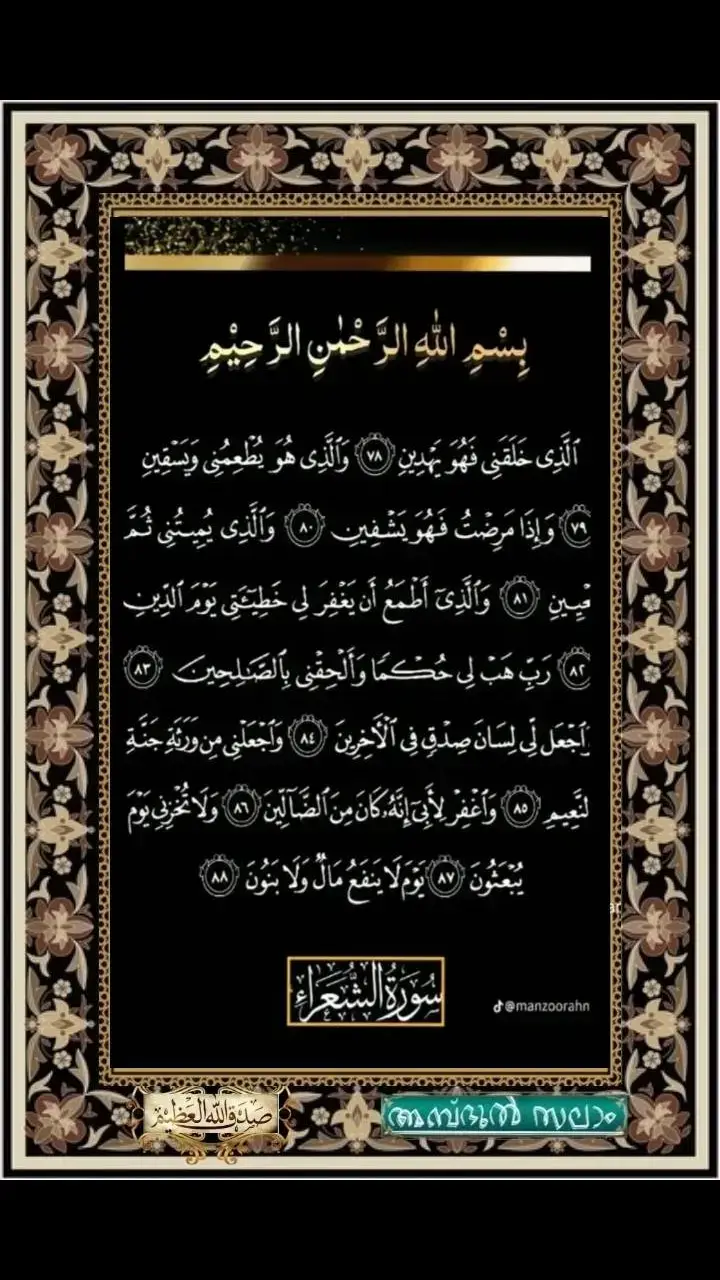 بِسْمِ اللهِ الرَّحْمٰنِ الرَّحِيْمِ
ٱلَّذِى خَلَقَنِى فَهُوَ يَهْدِينِ ٧٨ وَٱلَّذِى هُوَ يُطْعِمُنِى وَيَسْقِينِ
٧٩ وَإِذَا مَرِضْتُ فَهُوَ يَشْفِينِ ٨٠ وَٱلَّذِى يُمِيتُنِى ثُمَّ
يُحْيِينِ ٨١ وَٱلَّذِىٓ أَطْمَعُ أَن يَغْفِرَ لِى خَطِيٓـَٔتِى يَوْمَ ٱلدِّينِ
٨٢ رَبِّ هَبْ لِى حُكْمًا وَأَلْحِقْنِى بِٱلصَّٰلِحِينَ ٨٣
وَٱجْعَل لِّى لِسَانَ صِدْقٍ فِى ٱلْءَاخِرِينَ ٨٤ وَٱجْعَلْنِى مِن وَرَثَةِ جَنَّةِ
ٱلنَّعِيمِ ٨٥ وَٱغْفِرْ لِأَبِىٓ إِنَّهُۥ كَانَ مِنَ ٱلضَّآلِّينَ ٨٦ وَلَا تُخْزِنِى يَوْمَ
يُبْعَثُونَ ٨٧ يَوْمَ لَا يَنفَعُ مَالٌ وَلَا بَنُونَ ٨٨
سُورَةُ الشُّعَرَاءِ
@manzoorahn
صدق الله العظيم
അബ്ദുൽ സലാം